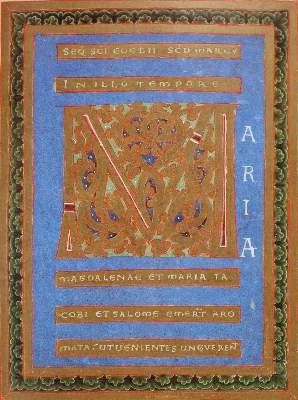 SEQ SCI EUGLII SCD MARCU
IN ILLO TEMPORE
M
ARIA
MAGDALENAE ET MARIA IA
COBI ET SALOME EMERT ARO
MATA UTUENIENTES UNGUERENT